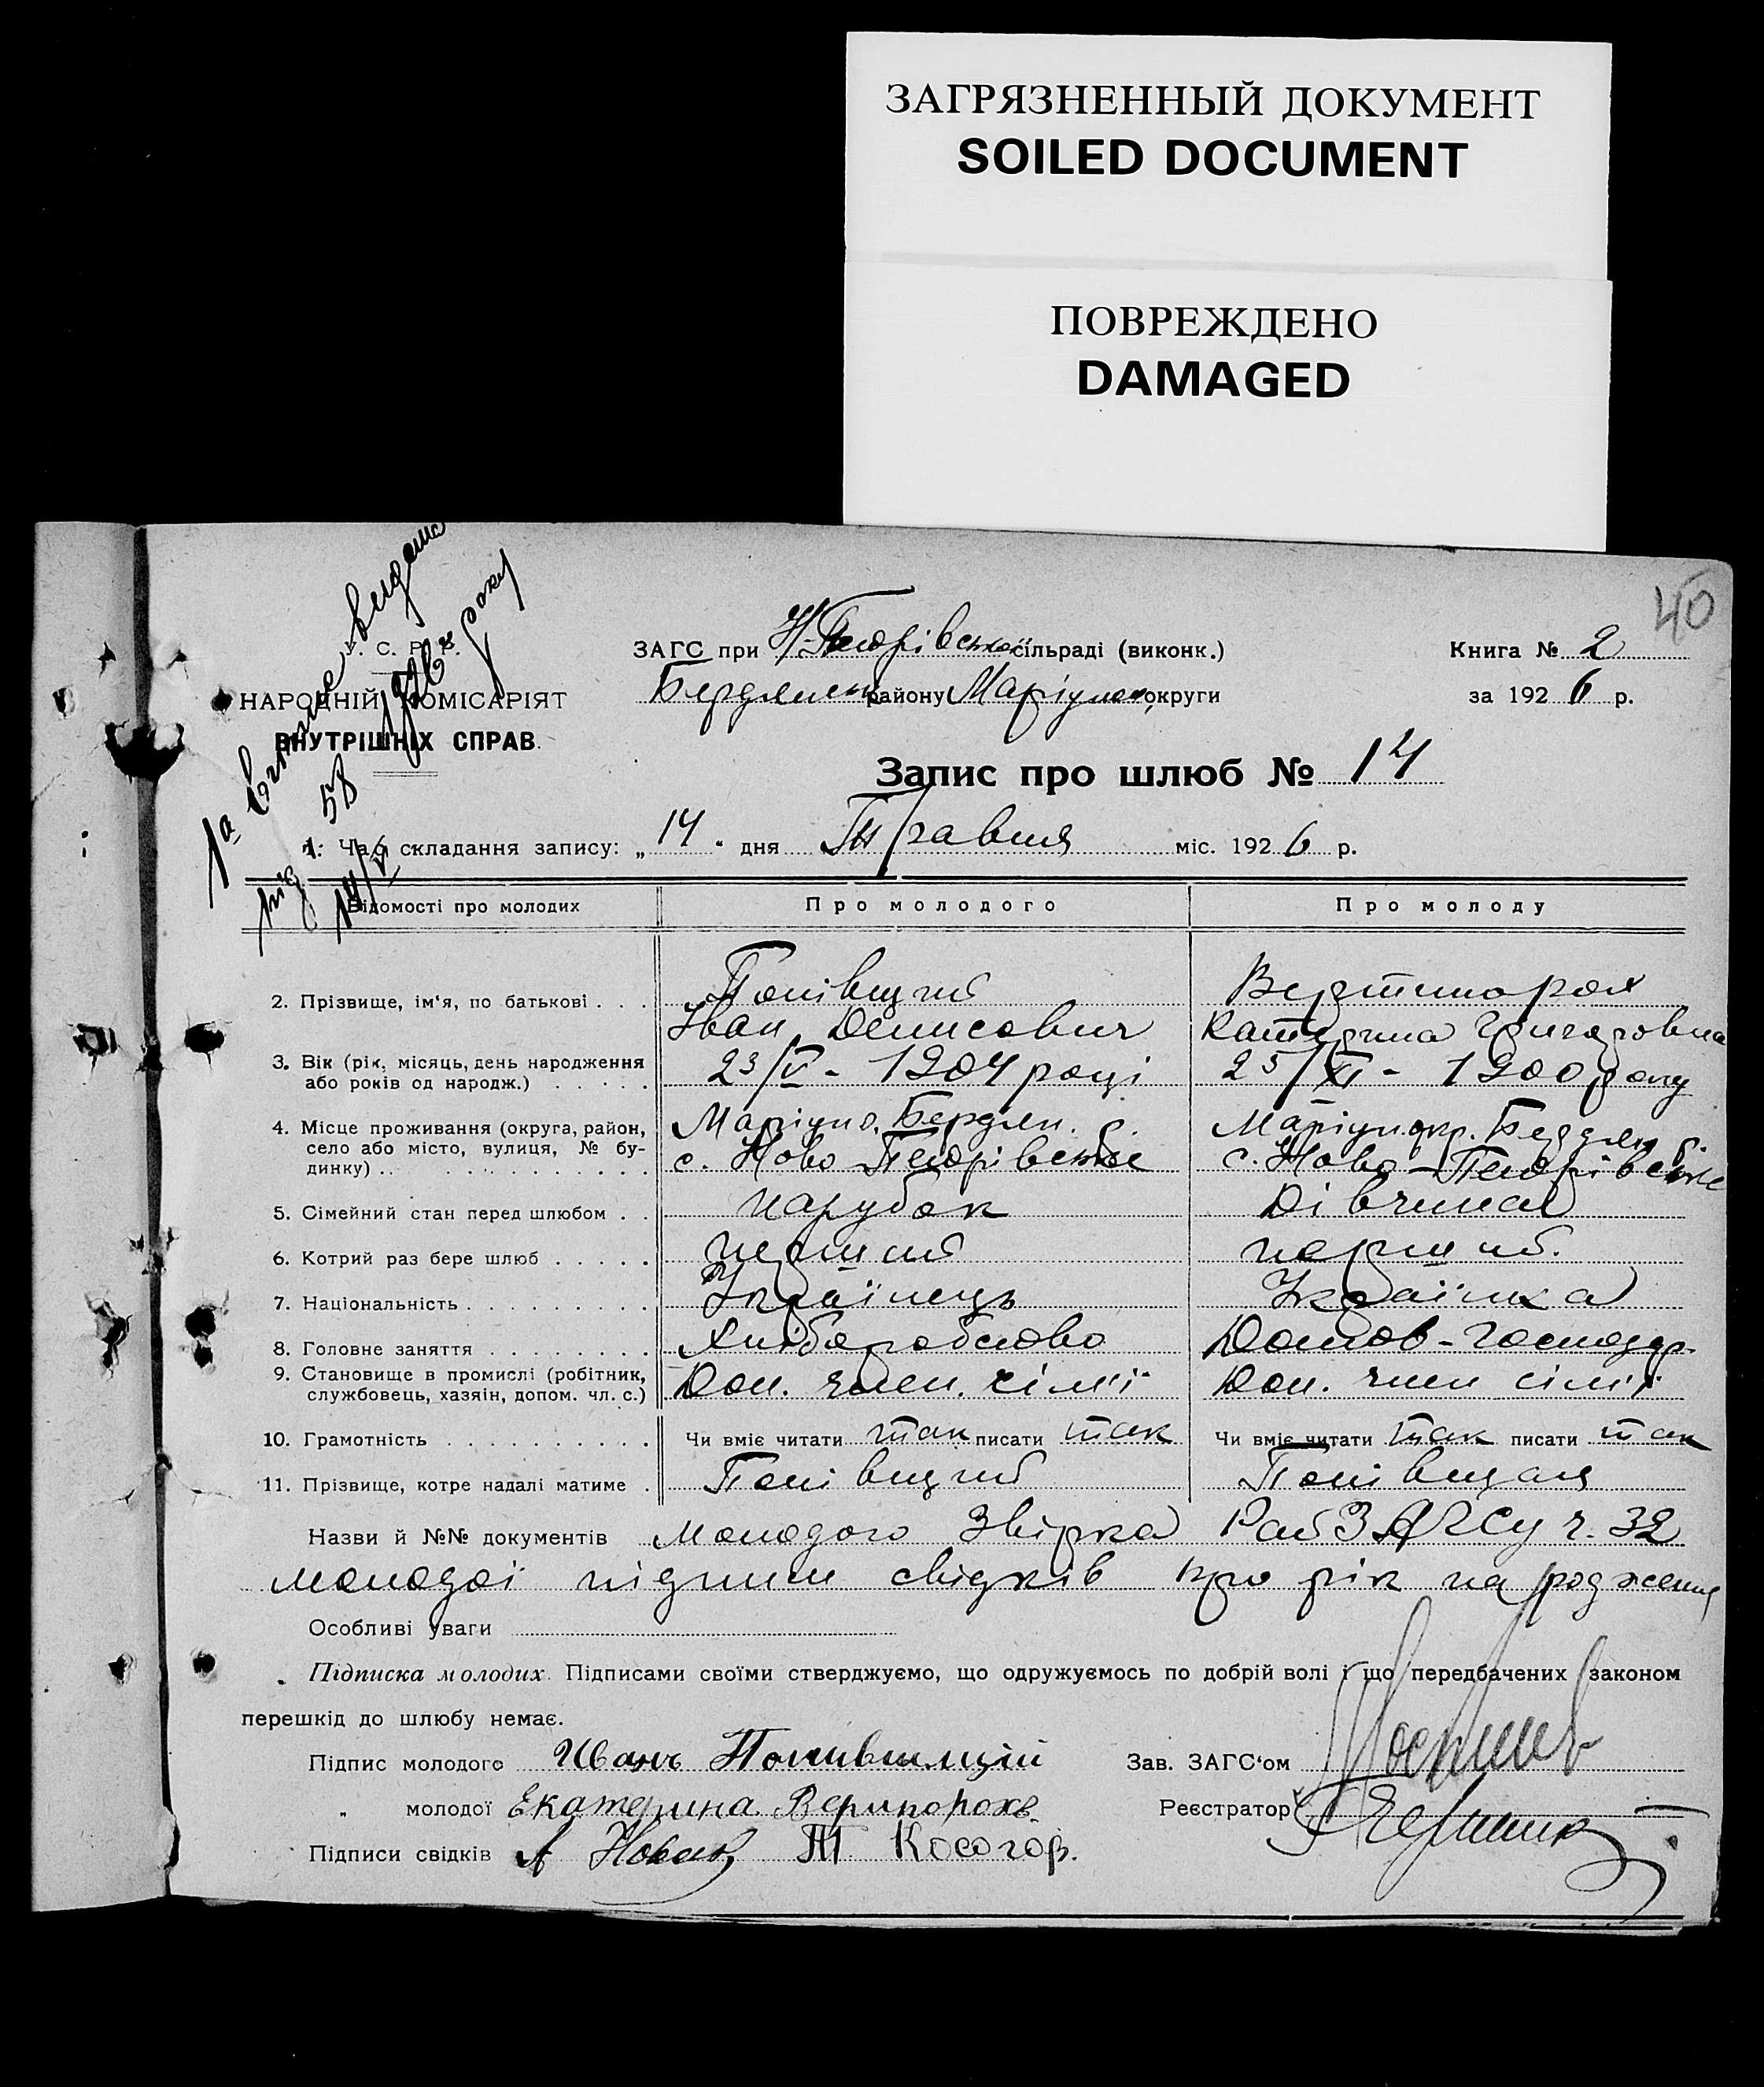 ЗАГРЯЗНЕННЫЙ ДОКУМЕНТ
SOILED DOCUMENT
ПОВРЕЖДЕНО
DAMAGED
40
1а видана
під 58
14/V 1926 року
С. Р. Р.
НАРОДНІЙ КОМІСАРІЯТ
ВНУТРІШНІХ СПРАВ.
ЗАГС при сільраді (виконк.)
Бердянськ району Маріупол. округи
Книга № 2
за 1926 р.
Запис про шлюб № 14
1. Час складання запису: „14" дня Травня міс. 1926 р.
Відомості про молодих Про молодого Про молоду
2. Прізвище, ім'я, по батькові . . .
Іван Денисович Катерина Григоровна
3. Вік (рік, місяць, день народження або років од народж.) . . . . . 23/V - 1904 році 25/XI - 1900 року
4. Місце проживання (округа, район, село або місто, вулиця, № будинку) . . Маріуп о. Бердян. Маріуп. окр. Бердян
с. Ново с. Ново
5. Сімейний стан перед шлюбом . . парубок Дівчина
6. Котрий раз бере шлюб . . . . . перший перший.
7. Національність . . . . . . . . . Українець Українка
8. Головне заняття . . . . . . . . Хліборобство Домов-господар.
9. Становище в промислі (робітник, службовець, хазяін, допом. чл. с.) Доп. член. сім'ї Доп. член сім'ї
10. Грамотність . . . . . . . . . . Чи вміє читати так писати так Чи вміє читати так писати так
11. Прізвище, котре надалі матиме .
Назви й №№ документів молодого Звірка ЗАГСу ч. 32
молодої підписи свідків про рік народження
Особливі уваги
Підписка молодих. Підписами своїми стверджуємо, що одружуємось по добрій волі і що передбачених законом
перешкід до шлюбу немає.
Підпис молодого Иванъ
„ молодої Екатерина
Підписи свідків А Новак Т Косогор.
Зав. ЗАГС'ом
Реєстратор